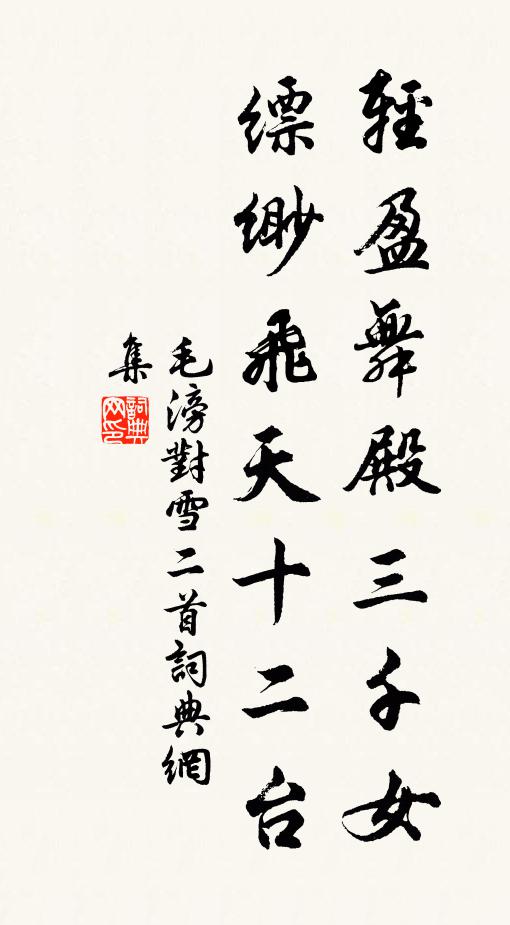 輕盈舞殿三千女
縹緲飛天十二台
毛滂對雪二首詞典網
集
詞典网印